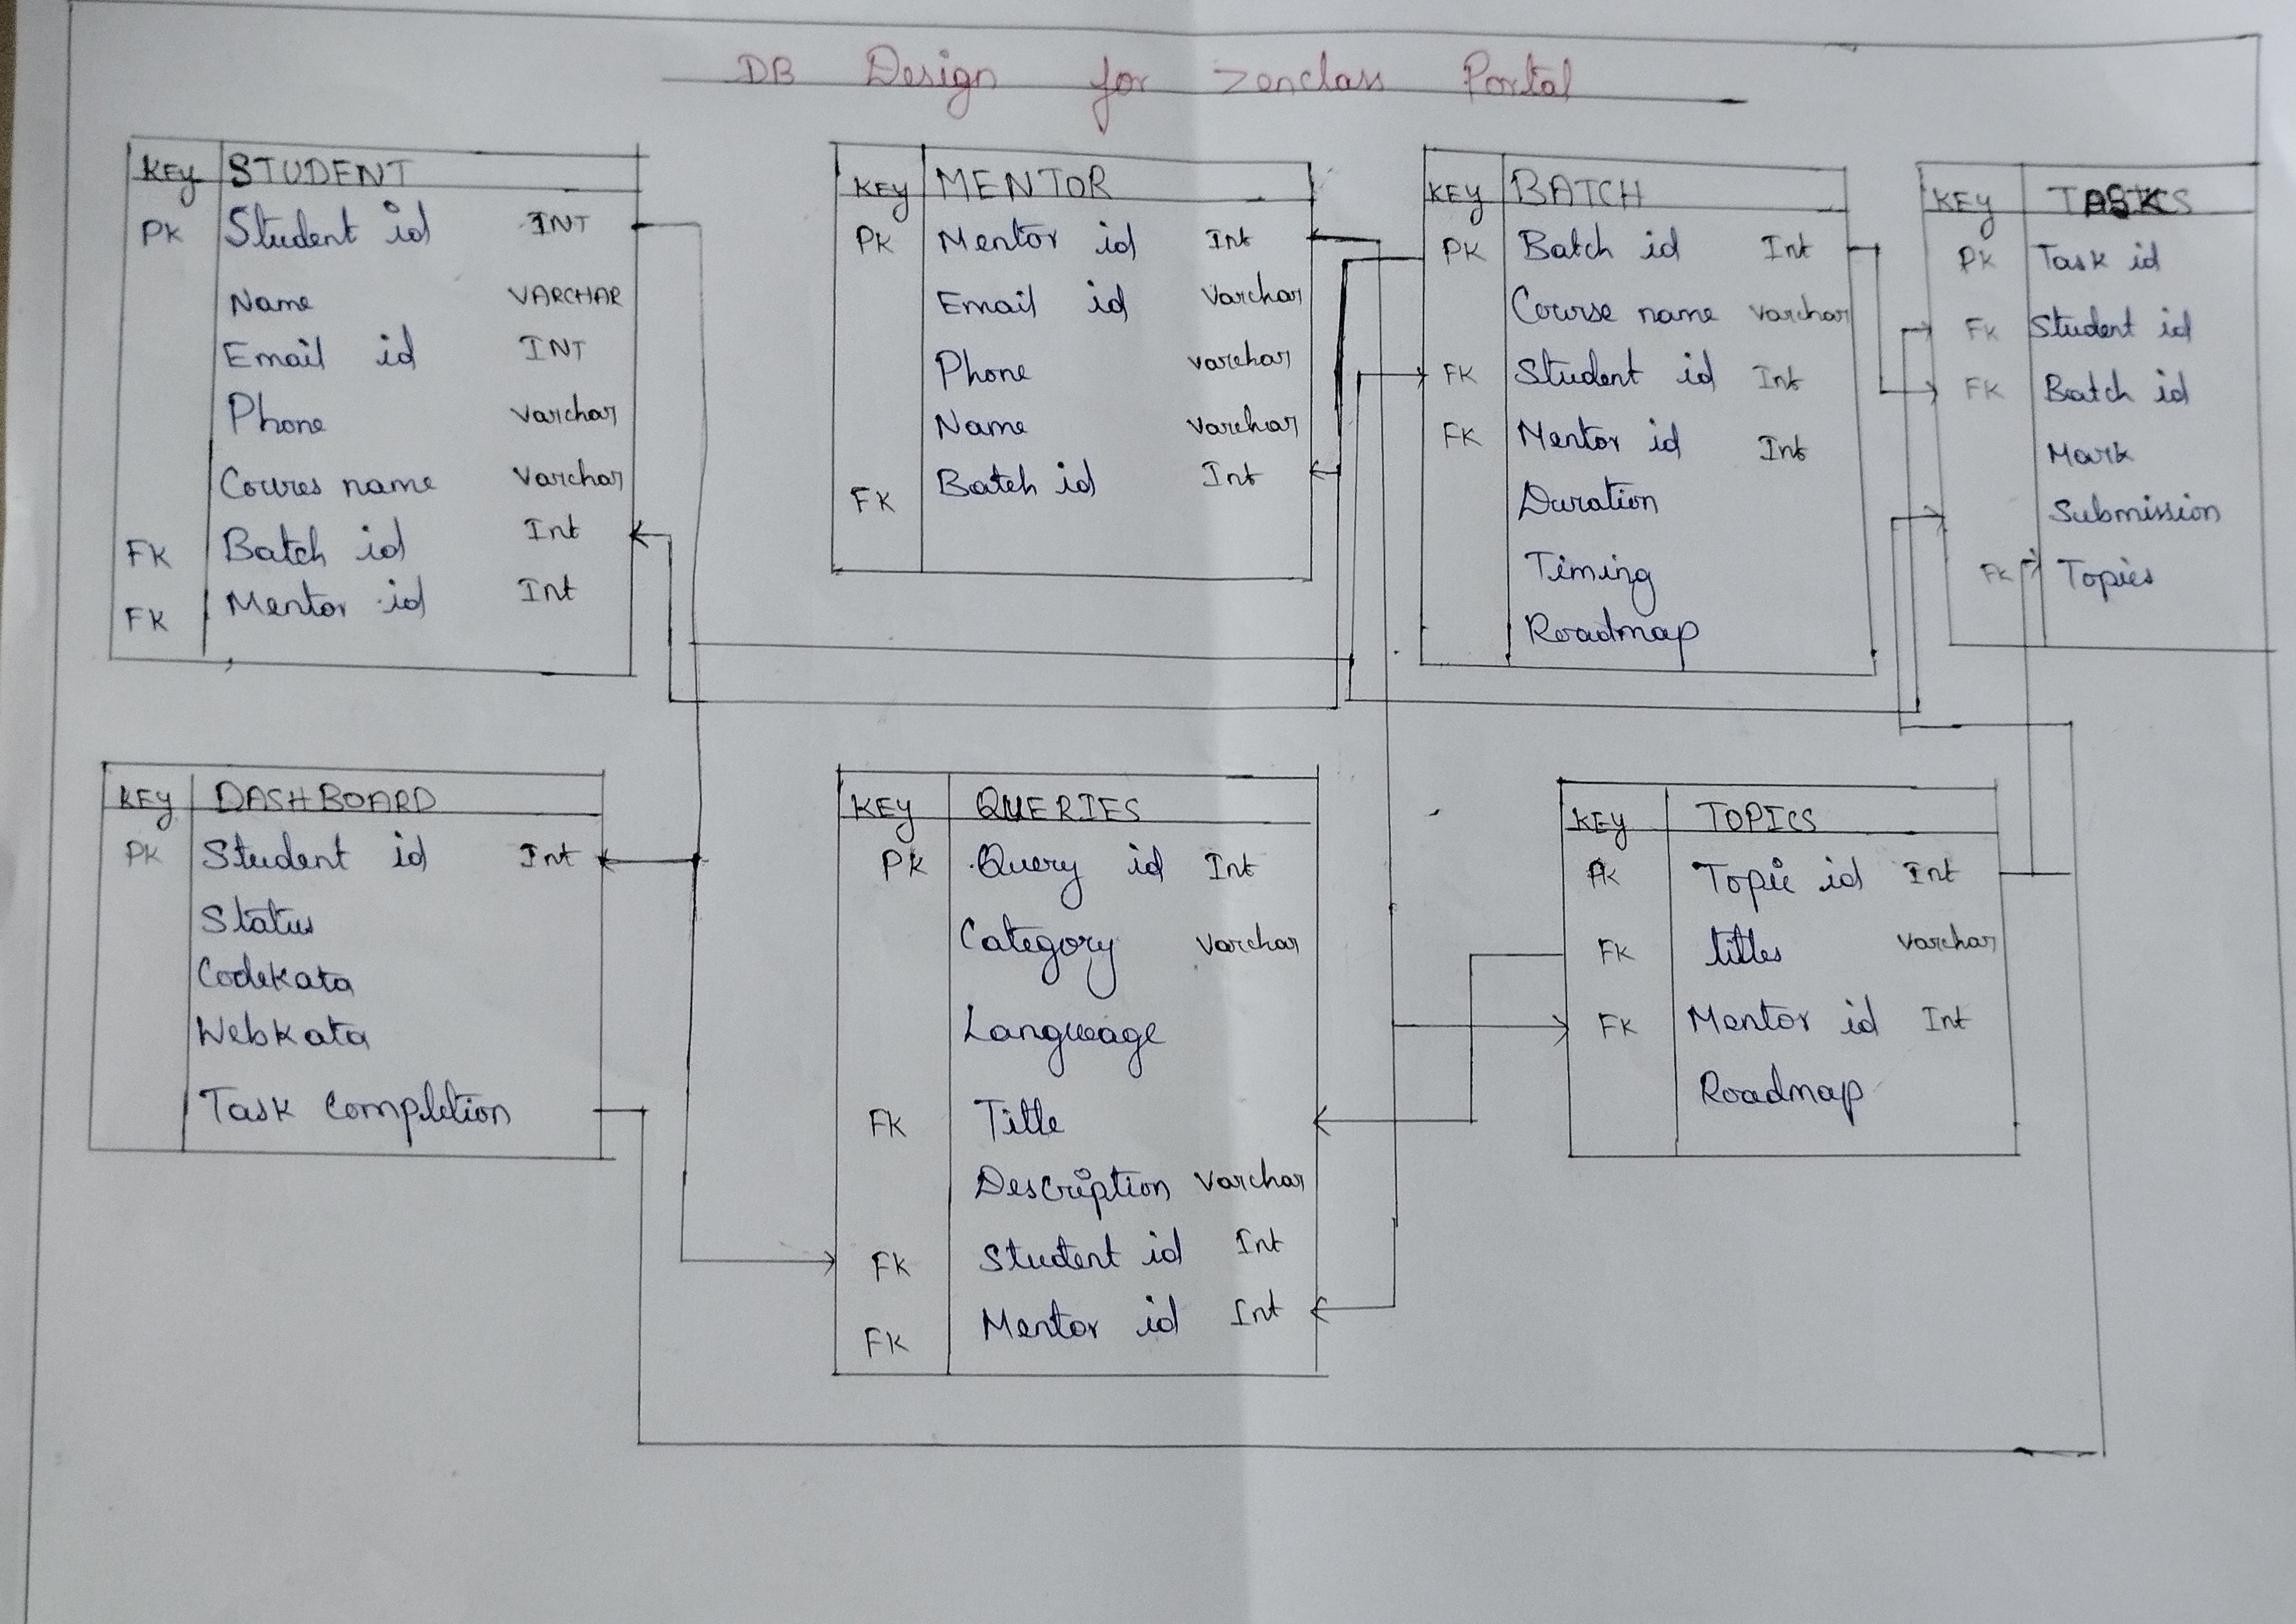 DB Design for Zenclass Portal
KEY STUDENT
PK Student id INT
Name VARCHAR
Email id INT
Phone Varchar
Coures name Varchar
FK Batch id Int
FK Mentor id Int
KEY MENTOR
PK Mentor id Int
Email id Varchar
Phone varchar
Name varchar
FK Batch id Int
KEY BATCH
PK Batch id Int
Course name varchar
FK Student id Int
FK Mentor id Int
Duration
Timing
Roadmap
KEY TASK
PK Task id
FK Student id
FK Batch id
Mark
Submission
FK Topics
KEY DASHBOARD
PK Student id Int
Status
Codekata
Webkata
Task Completion
KEY QUERIES
PK Query id Int
Category Varchar
Language
FK Title
Description Varchar
FK Student id Int
FK Mentor id Int
KEY TOPICS
PK Topic id Int
FK titles varchar
FK Mentor id Int
Roadmap